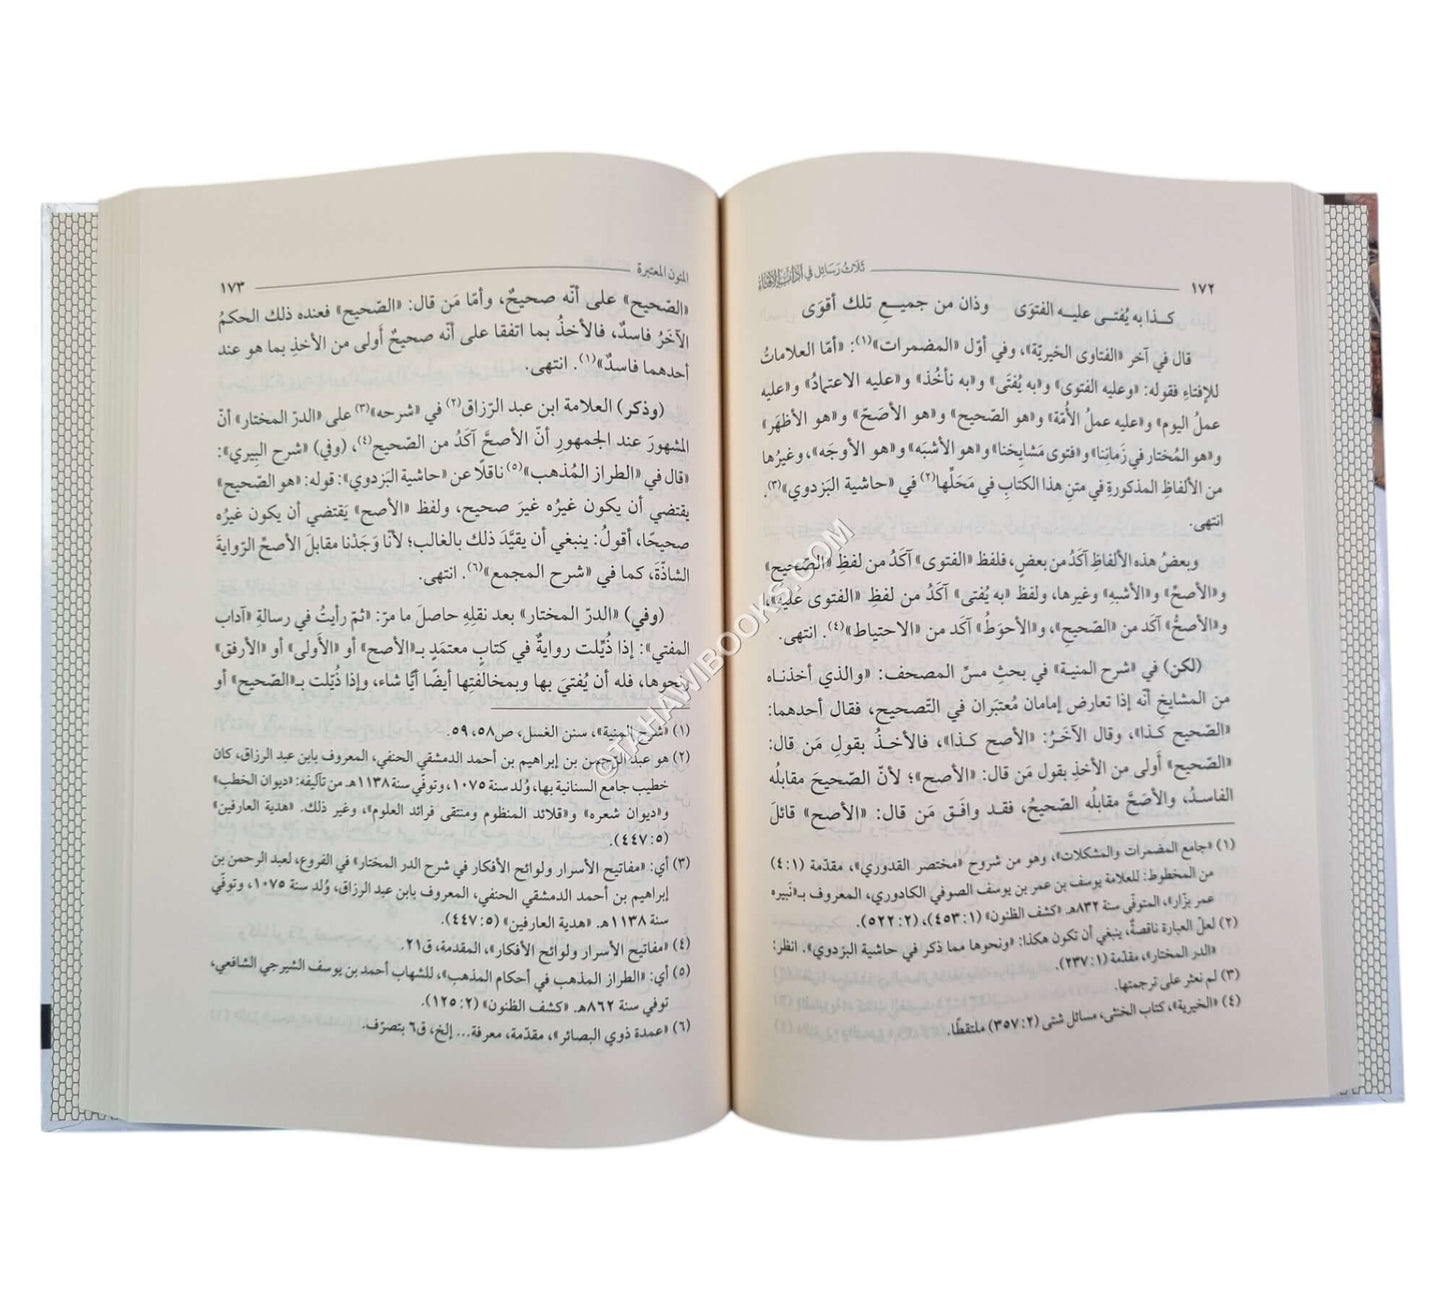 ١٧٢
ثلاث رسائل في آداب الإفتاء
كذا به يُفتى عليه الفتوَى وذان من جميعِ تلك أقوَى
قال في آخر «الفتاوى الخيريّة»، وفي أوّل «المضمرات»(١): «أمّا العلاماتُ
للإفتاءِ فقوله: «وعليه الفتوى» و«به يُفتَى» و«به نأخُذ» و«عليه الاعتمادُ» و«عليه
عملُ اليوم» و«عليه عملُ الأُمّة» و«هو الصّحيح» و«هو الأصَحّ» و«هو الأظهَر»
و«هو المُختار في زمانِنا» و«فتوى مَشايِخنا» و«هو الأشبَه» و«هو الأوجَه»، وغيرُها
من الألفاظِ المذكورةِ في متنِ هذا الكتابِ في مَحَلِّها(٢) في «حاشية البَزدوي»(٣).
انتهى.
وبعضُ هذه الألفاظِ آكَدُ من بعضٍ، فلفظ «الفتوى» آكَدُ من لفظِ «الصّحيح»
و«الأصحّ» و«الأشبهِ» وغيرها، ولفظ «به يُفتى» آكَدُ من لفظِ «الفتوى عليه»،
و«الأصحُّ» آكَد من «الصّحيحِ»، و«الأحوَطُ» آكَد من «الاحتياط»(٤). انتهى.
(لكن) في «شرح المنية» في بحثِ مسِّ المصحف: «والذي أخذناه
من المشايخِ أنّه إذا تعارض إمامان مُعتبَران في التّصحيح، فقال أحدهما:
«الصّحيح كذا»، وقال الآخَرُ: «الأصح كذا»، فالأخذُ بقولِ مَن قال:
«الصّحيح» أولى من الأخذِ بقول مَن قال: «الأصح»؛ لأنّ الصّحيحَ مقابلُه
الفاسدُ، والأصَحَّ مقابلُه الصّحيحُ، فقد وافَق مَن قال: «الأصح» قائلَ
(١) «جامع المضمرات والمشكلات»، وهو من شروح «مختصر القدوري»، مقدّمة (١: ٤)
من المخطوط: للعلامة يوسف بن عمر بن يوسف الصوفي الكادوري، المعروف بـ«نَبيره
عمر بزّار»، المتوفّى سنة ٨٣٢هـ «كشف الظنون» (١: ٤٥٣)، (٢: ٥٢٢).
(٢) لعلّ العبارة ناقصةٌ، ينبغي أن تكون هكذا: «ونحوها مما ذكر في حاشية البزدوي». انظر:
«الدر المختار»، مقدّمة (١: ٢٣٧).
(٣) لم نعثر على ترجمتها.
(٤) «الخيرية»، كتاب الخنثى، مسائل شتى (٢: ٣٥٧) ملتقطًا.
المتون المعتبرة
١٧٣
«الصّحيح» على أنّه صحيحٌ، وأمّا مَن قال: «الصّحيح» فعنده ذلك الحكمُ
الآخَرُ فاسدٌ، فالأخذُ بما اتفقا على أنّه صحيحٌ أولى من الأخذِ بما هو عند
أحدهما فاسدٌ»(١). انتهى.
(وذكر) العلامة ابن عبد الرّزاق(٢) في «شرحه»(٣) على «الدرّ المختار» أنّ
المشهورَ عند الجمهورِ أنّ الأصحَّ آكَدُ من الصّحيح(٤)، (وفي) «شرح البِيري»:
«قال في «الطراز المُذهب»(٥) ناقلًا عن «حاشية البَزدوي»: قوله: «هو الصّحيح»
يقتضي أن يكون غيرُه غيرَ صحيح، ولفظ «الأصح» يَقتضي أن يكون غيرُه
صحيحًا، أقولُ: ينبغي أن يقيَّدَ ذلك بالغالب؛ لأنّا وَجَدْنا مقابلَ الأصحِّ الرّوايةَ
الشاذّةَ، كما في «شرح المجمع»(٦). انتهى.
(وفي) «الدرّ المختار» بعد نقلِهِ حاصلَ ما مرّ: «ثمّ رأيتُ في رسالةِ «آداب
المفتي»: إذا ذُيِّلت روايةٌ في كتابٍ معتمَدٍ بـ«الأصح» أو «الأَولى» أو «الأرفق»
ونحوها، فله أن يُفتيَ بها وبمخالفتِها أيضًا أيًّا شاء، وإذا ذُيِّلت بـ«الصّحيح» أو
(١) «شرح المنية»، سنن الغسل، ص٥٨، ٥٩.
(٢) هو عبد الرّحمن بن إبراهيم بن أحمد الدمشقي الحنفي، المعروف بابن عبد الرزاق، كان
خطيب جامع السنانية بها، وُلد سنة ١٠٧٥، وتوفّي سنة ١١٣٨هـ من تآليفه: «ديوان الخطب»
و«ديوان شعره» و«قلائد المنظوم ومنتقى فرائد العلوم»، وغير ذلك. «هدية العارفين»
(٥: ٤٤٧).
(٣) أي: «مفاتيح الأسرار ولوائح الأفكار في شرح الدر المختار» في الفروع، لعبد الرحمن بن
إبراهيم بن أحمد الدمشقي الحنفي، المعروف بابن عبد الرزاق، وُلد سنة ١٠٧٥، وتوفّي
سنة ١١٣٨هـ. «هدية العارفين» (٥: ٤٤٧).
(٤) «مفاتيح الأسرار ولوائح الأفكار»، المقدمة، ق٢١.
(٥) أي: «الطراز المذهب في أحكام المذهب»، للشهاب أحمد بن يوسف الشيرجي الشافعي،
توفي سنة ٨٦٢هـ. «كشف الظنون» (٢: ١٢٥).
(٦) «عمدة ذوي البصائر»، مقدّمة، معرفة... إلخ، ق٦ بتصرّف.
©TAHAWIBOOKS.COM